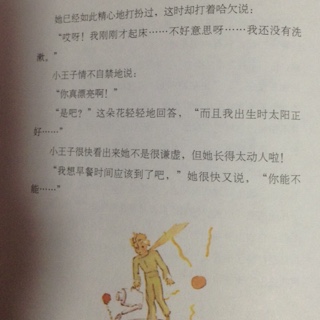 她已经如此精心地打扮过，这时却打着哈欠说：
“哎呀！我刚刚才起床……不好意思呀……我还没有洗
漱。”
小王子情不自禁地说：
“你真漂亮啊！”
“是吧？”这朵花轻轻地回答，“而且我出生时太阳正
好……”
小王子很快看出来她不是很谦虚，但她长得太动人啦！
“我想早餐时间应该到了吧，”她很快又说，“你能不
能……”